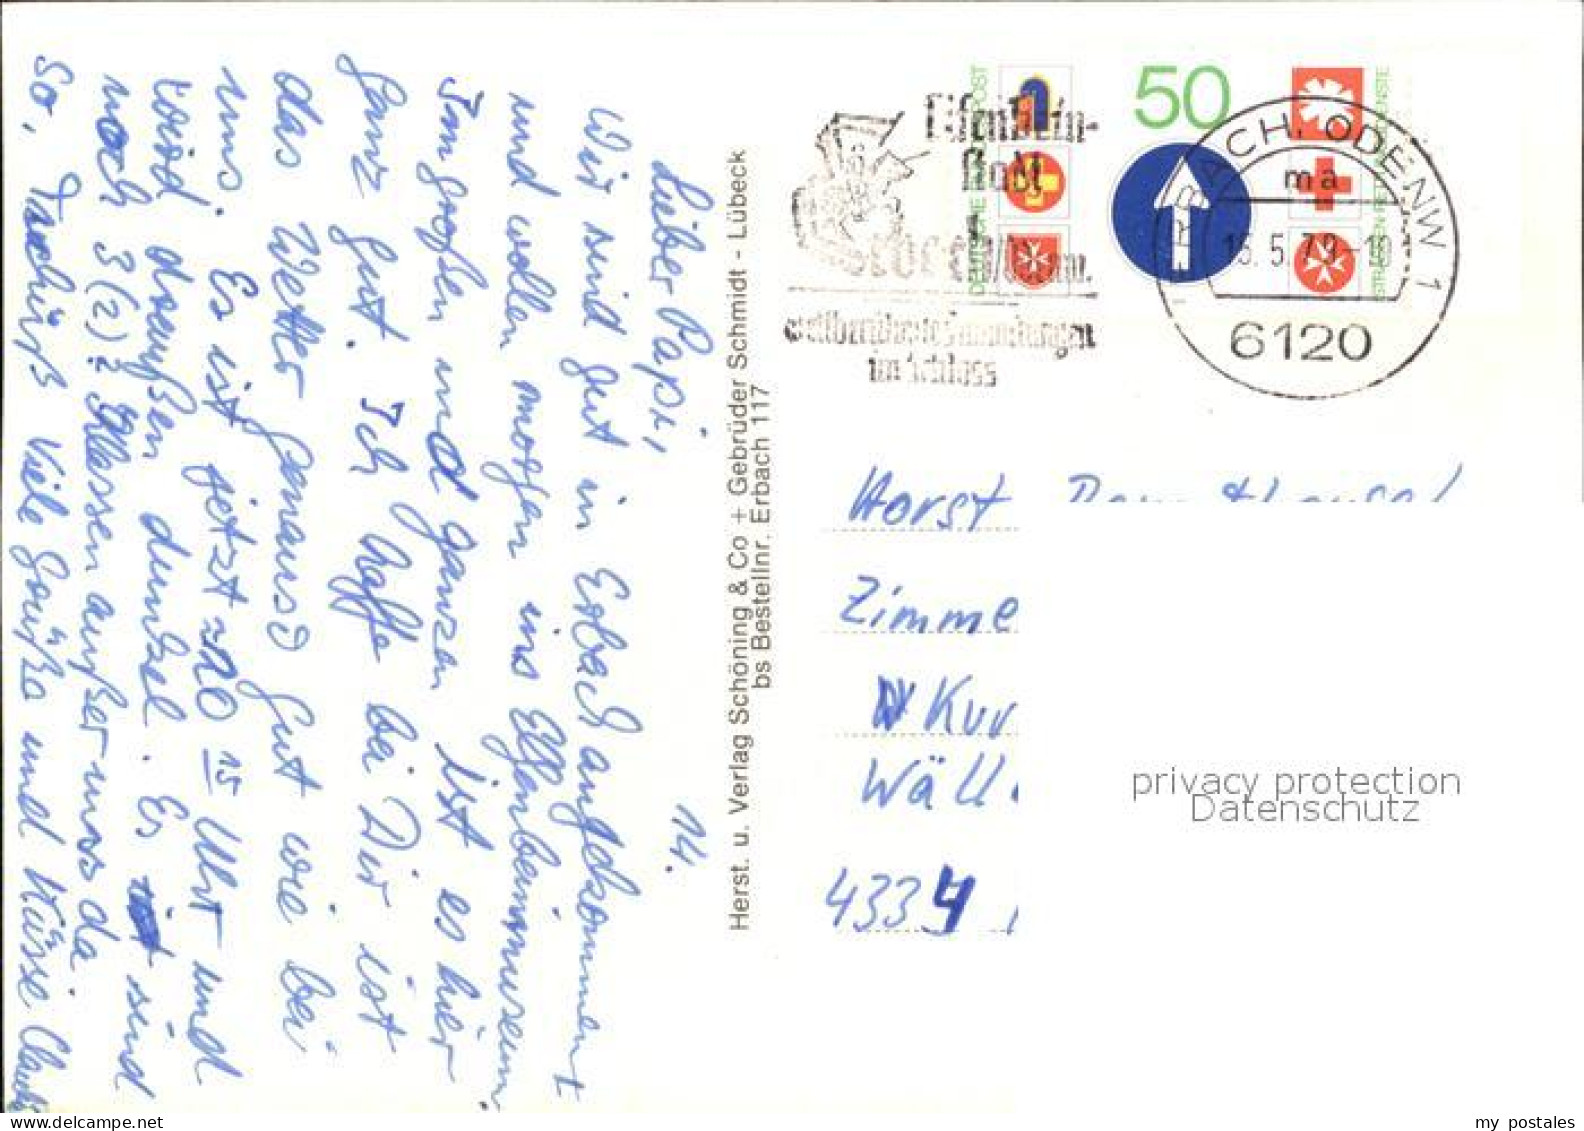 14.
Lieber Papi,
Wir sind gut in Erbach angekommen
und wollen morgen ins Elfenbeinmuseum
Im großen und ganzen ist es hier
ganz gut. Ich hoffe bei Dir ist
das Wetter genauso gut wie bei
uns. Es ist jetzt 20 15 Uhr und
wird draußen dunkel. Es sind
noch 3 (2) Klassen außer uns da
So, Tschüß Viele Grüße und Küsse Claudia
Herst. u. Verlag Schöning & Co + Gebrüder Schmidt - Lübeck
bs Bestellnr. Erbach 117
DEUTSCHE BUNDESPOST
50
STRASSEN-RETTUNGSDIENSTE
Erbach/Odenw.
weltberühmte Sammlungen
im Schloss
ERBACH, ODENW 1
ma
15.5.79-18
6120
Horst
Zimme
Kur
Wäll
4334
privacy protection
Datenschutz
my postales